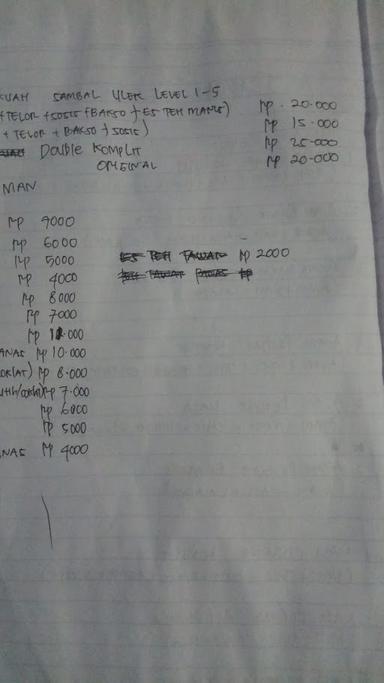 KUAH SAMBAL ULEK LEVEL 1-5
+TELOR +SOSIS +BAKSO +ES TEH MANIS) Rp. 20.000
+ TELOR + BAKSO + SOSIS) Rp 15.000
Double KOMPLIT Rp 25.000
ORIGINAL Rp 20.000
MAN
Rp 9000
Rp 6000
Rp 5000 ES TEH TAWAR Rp 2000
Rp 4000 TEH TAWAR PANAS Rp
Rp 8000
Rp 7000
Rp 12.000
ANAS Rp 10.000
OKLAT) Rp 8.000
Rp 7.000
Rp 6000
Rp 5000
NAS Rp 4000